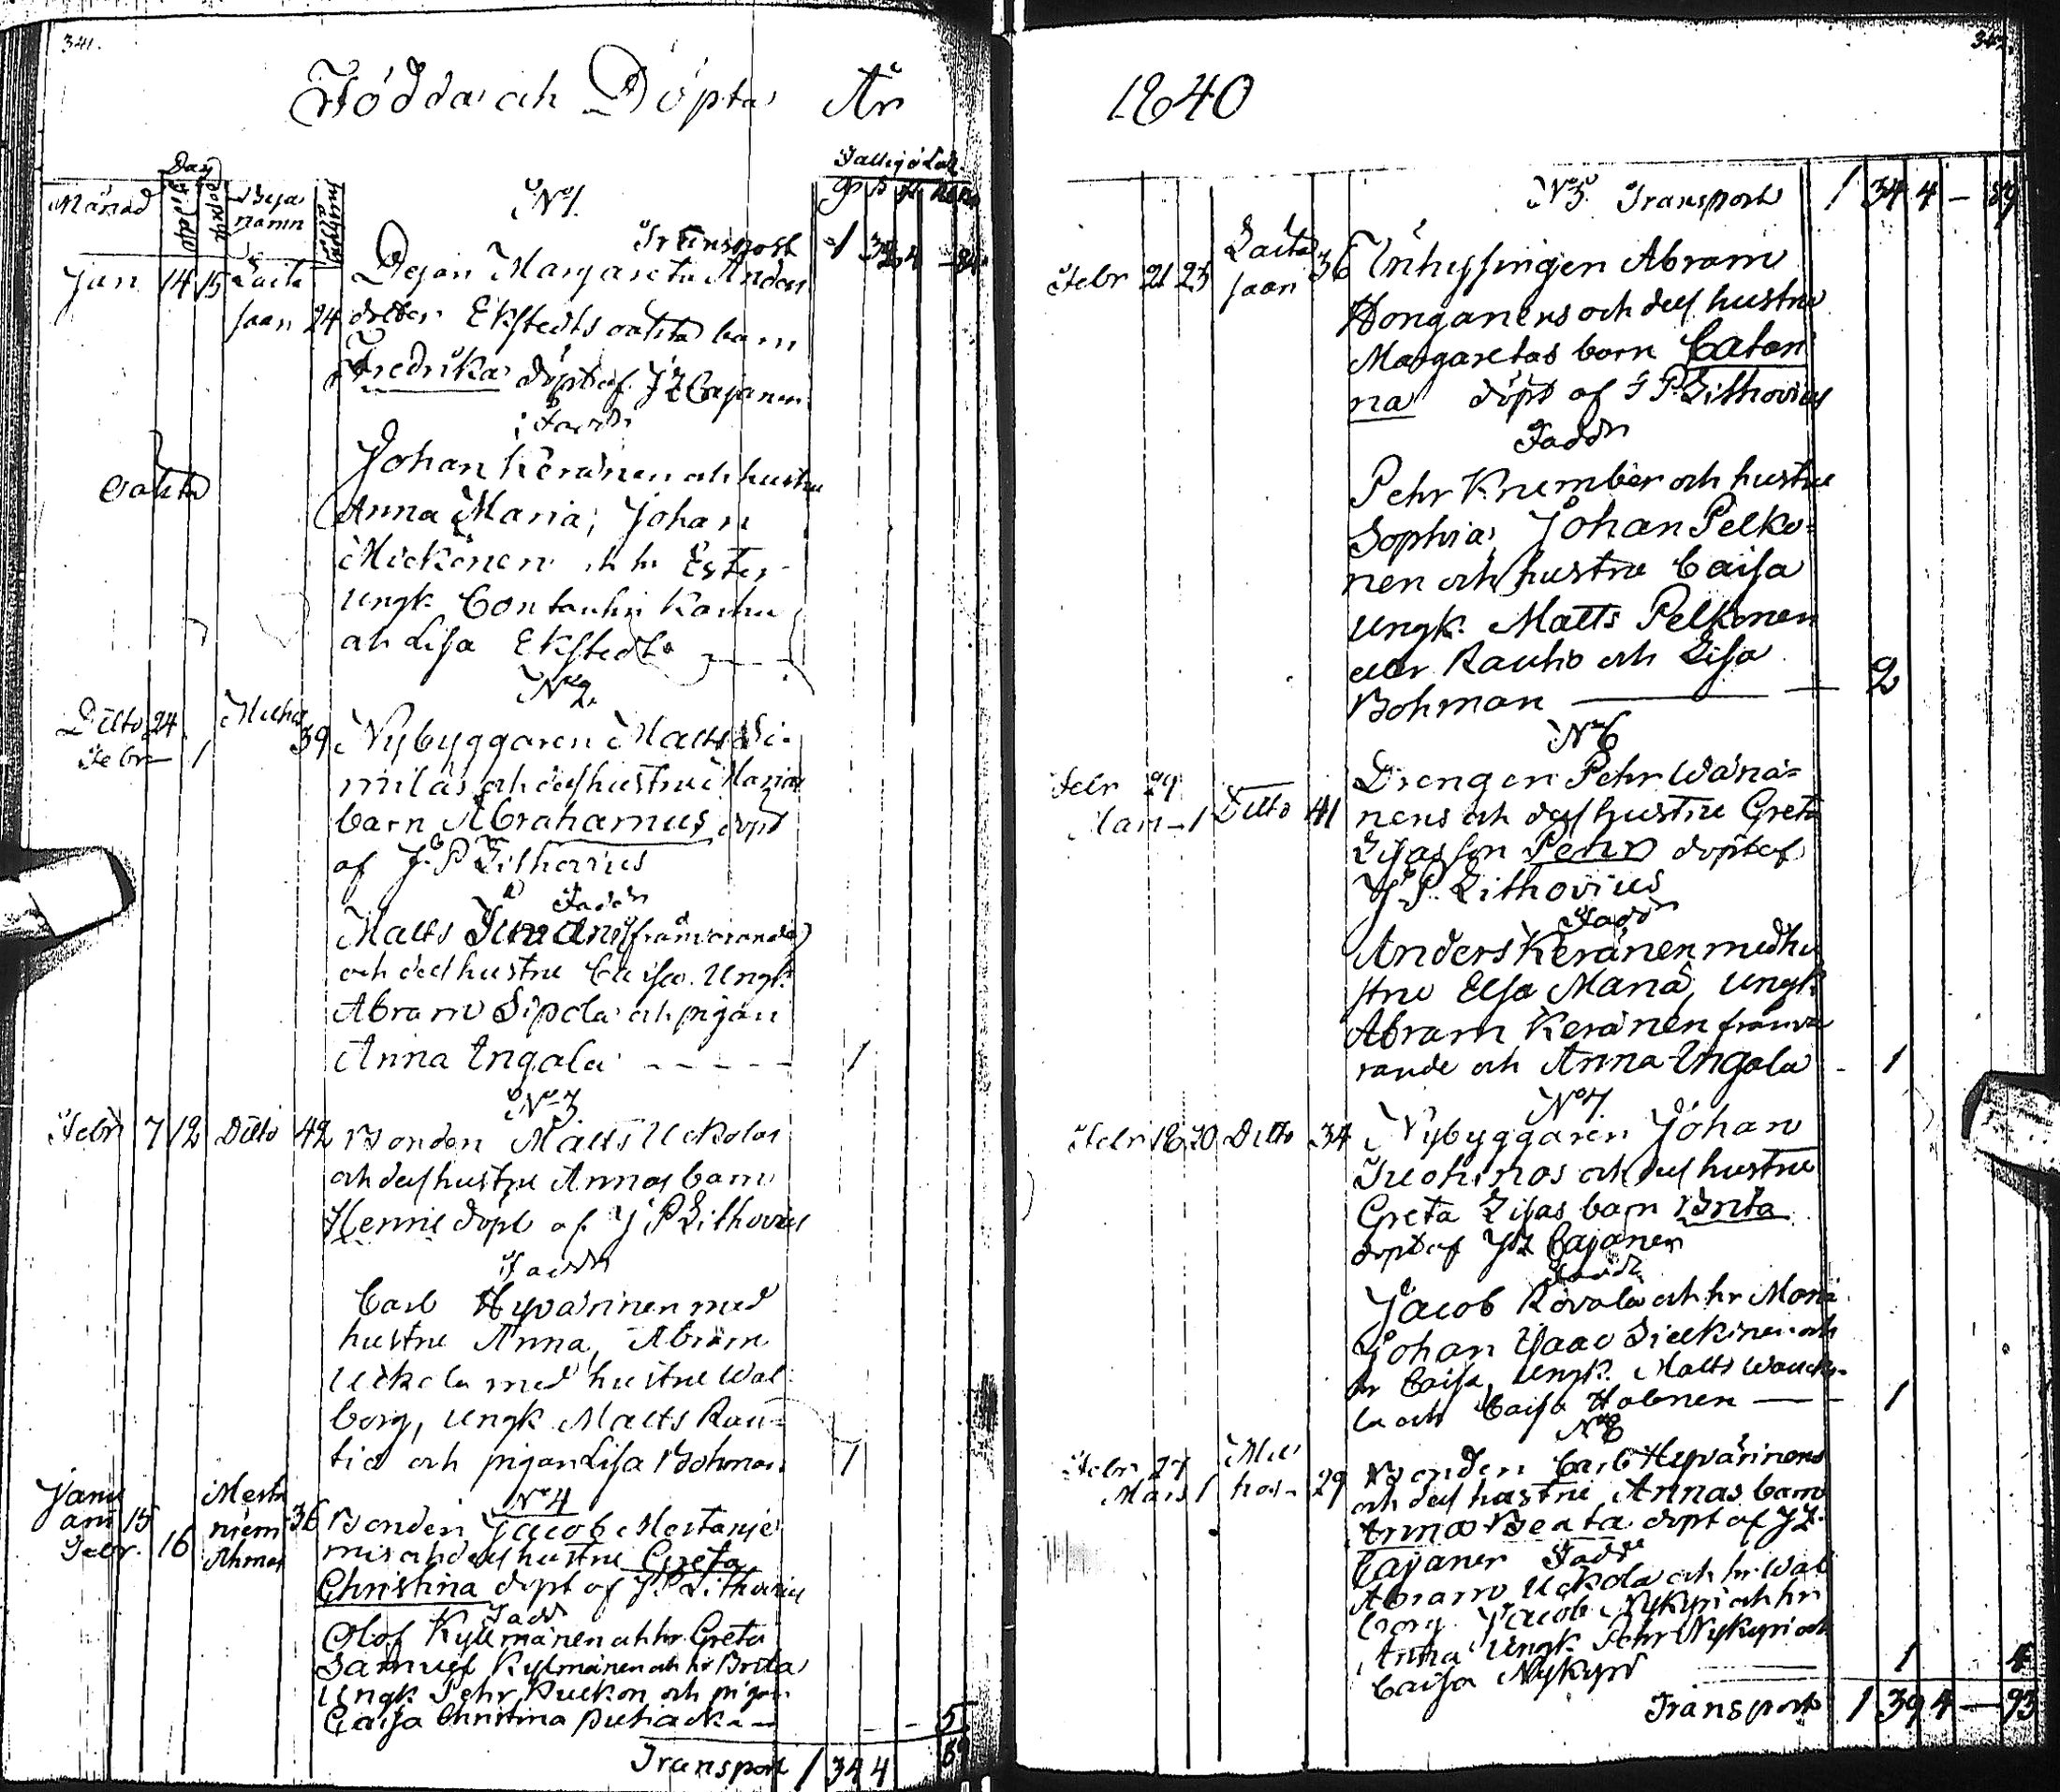 341.
Födda och Döpta År
Dag
Månad
Byanamn
No 1.
Transport 1 32 4
Jan 14 15 Laita
Pigan Margareta Anders
saari 24 dotter Ekstedts oäkta barn
Fredrika döpt af J Z Cajaner
Fadd:
Johan Keränen och hustru
oäkta
Anna Maria; Johan
Mickonen och hr Ester
Ungk. Constantin Karhu
och Lisa Ekstedt
No 2.
Ditto 24 Melha
Febr – 1 39 Nybyggaren Matts Si-
miläs och dess hustrus Marias
barn Abrahamus döpt
af J. P. Lithovius
Faddr
Matts Juudin (frånvarande)
och dess hustru Caisa. Ungk.
Abram Sipola och pigan
Anna Ingala – – – – – 1
No 3.
Febr 7 12 Ditto 42 Bonden Matts Uckolas
och dess hustru Annas barn
Henric döpt af J P Lithovius
Faddr
Carl Hyvärinen med
hustru Anna, Abram
Uckola med hustru Wal-
borg, Ungk Matts Rau-
tio och pigan Lisa Bohman 1
No 4
Janu
ari 15
Febr. 16
Mesta
niemi 36
Ahmas
Bonden Jacob Mestanie
mis och dess hustru Greta
Christina döpt af J. P Lithovius
Fadd
Olof Kyllmänen och hr Greta
Samuel Kylmänen och hr Brita
Ungk Pehr Puckon och pigan
Caisa Christina – – 5
Transport 1 34 4 89
1840
No 5. Transport 1 34 4 – 89
Febr 21 23 Laita
saari 36 Inhysingen Abram
Honganens och dess hustru
Margaretas barn Catari
na döpt af J P. Lithovius
Faddr
Pehr Krumber och hustru
Sophia, Johan Pelko-
nen och hustru Caisa
Ungk. Matts Pelkonen
eller Rautio och Lisa
Bohman – – 2
No 6
Febr 29
Mars – 1 Ditto 41
Drengen Pehr Wänä-
nens och dess hustru Greta
Lisas son Pehr döpt af
J. P. Lithovius
Faddr
Anders Keränen med hu
stru Elsa Maria, Ungk.
Abram Keränen frånva
rande och Anna Ingala – 1
No 7.
Febr 18 20 Ditto 34 Nybyggaren Johan
Juohinos och dess hustru
Greta Lisas barn Brita
döpt af J Z Cajaner
Faddr
Jacob Rovala och hr Maria
Johan Isaac Siekinen och
hr Caisa, Ungk. Matts
la och Caisa Holonen – – 1
No 8
Febr 27 Mel
Mars 1 has – 29 Bonden Carl Hyvärinens
och dess hustru Annas barn
Anna Beata döpt af J Z.
Cajaner Faddr
Abram Uckola och hr Wal
borg Jacob Nykyri och hr
Anna Ungk. Pehr Nykyri och
Caisa Nykyri – 1 4
Transport 1 39 4 – 93